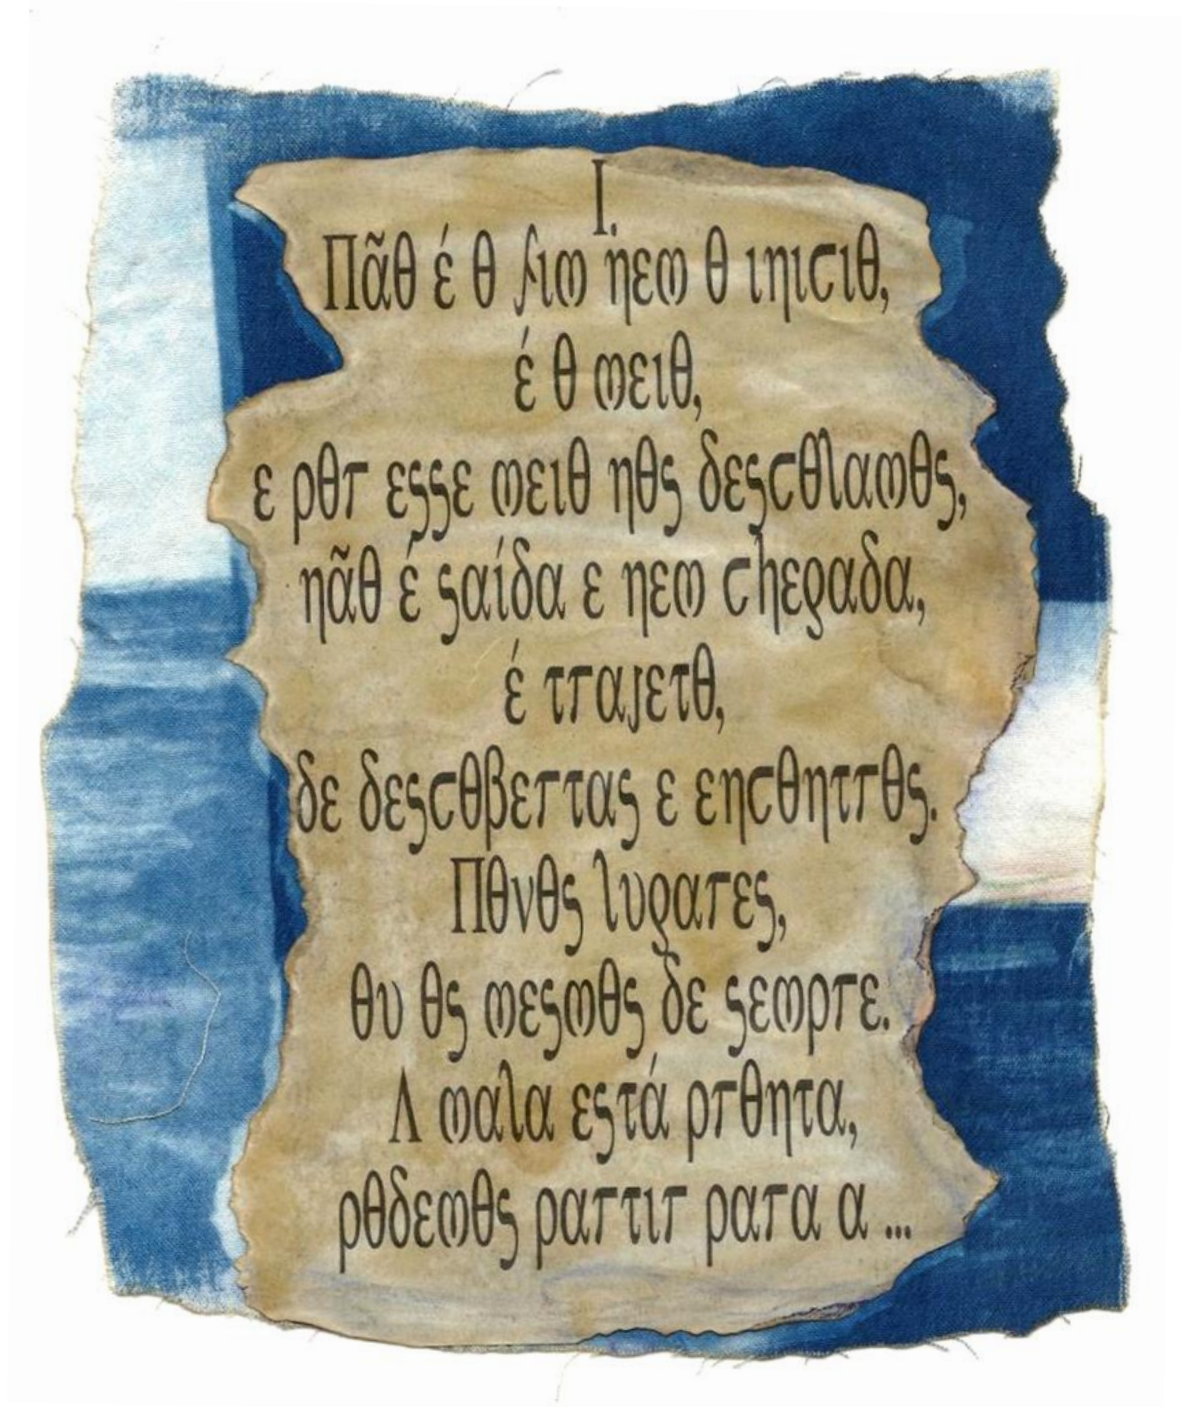 I.
Não é o fim nem o inicio,
é o meio,
e por esse meio nos descolamos,
não é saída e nem chegada,
é trajeto,
de descobertas e encontros.
Novos lugares,
ou os mesmos de sempre.
A mala está pronta,
podemos partir para a ...